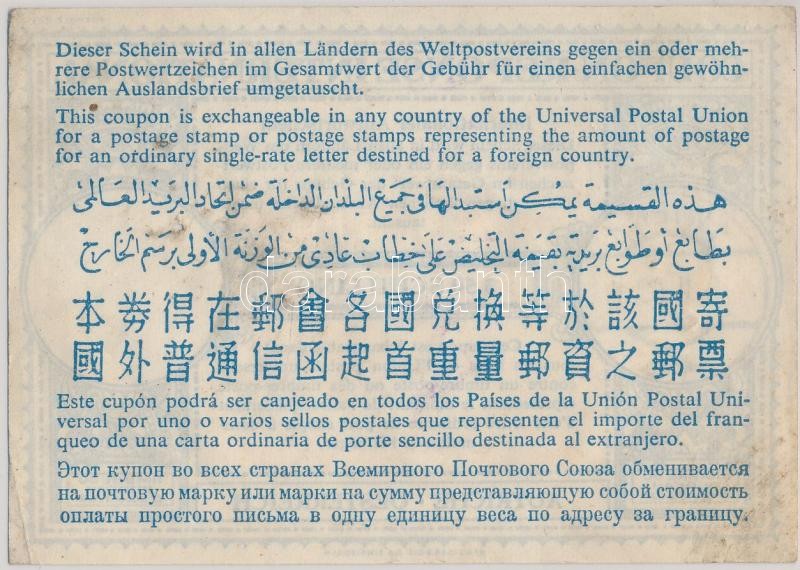 Dieser Schein wird in allen Ländern des Weltpostvereins gegen ein oder meh-
rere Postwertzeichen im Gesamtwert der Gebühr für einen einfachen gewöhn-
lichen Auslandsbrief umgetauscht.
This coupon is exchangeable in any country of the Universal Postal Union
for a postage stamp or postage stamps representing the amount of postage
for an ordinary single-rate letter destined for a foreign country.
هذه القسيمة يمكن استبدالها في جميع البلدان الداخلة ضمن اتحاد البريد العالمى
بطابع أو طوابع بريدية بقيمة التخليص على خطاب عادى من الوزنة الأولى برسم الخارج
darabanth
本券得在郵會各國兌換等於該國寄
國外普通信函起首重量郵資之郵票
Este cupón podrá ser canjeado en todos los Países de la Unión Postal Uni-
versal por uno o varios sellos postales que representen el importe del fran-
queo de una carta ordinaria de porte sencillo destinada al extranjero.
Этот купон во всех странах Всемирного Почтового Союза обменивается
на почтовую марку или марки на сумму представляющую собой стоимость
оплаты простого письма в одну единицу веса по адресу за границу.